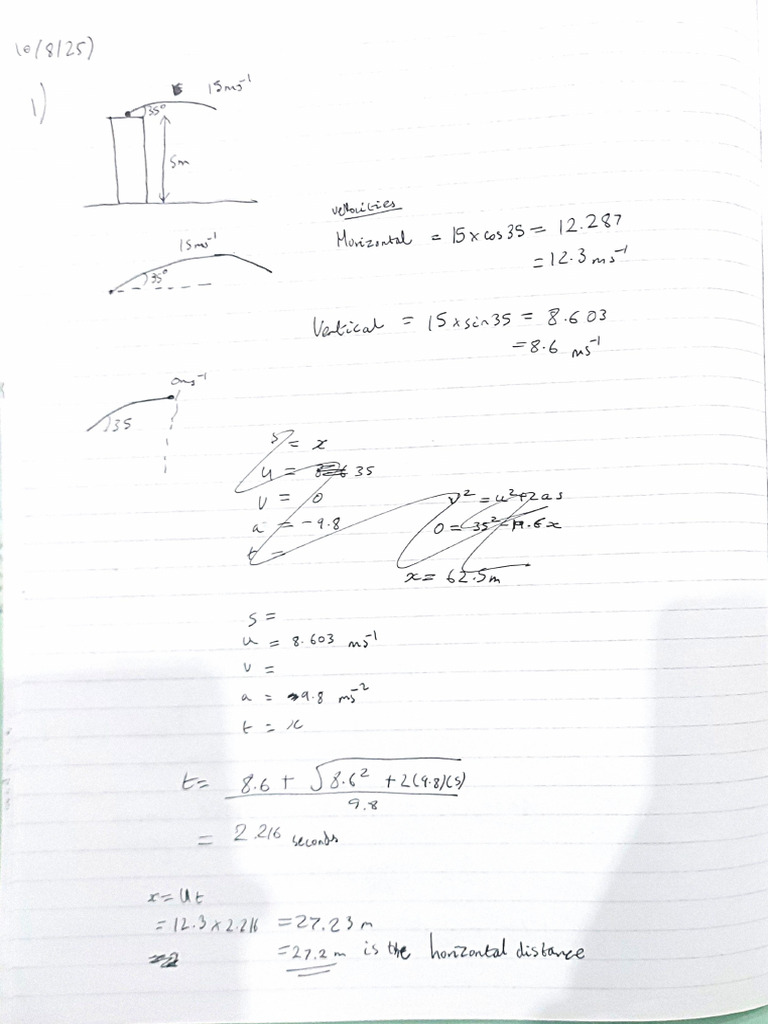 10/8/25)
1)
15ms⁻¹
35°
5m
15ms⁻¹
35°
velocities
Horizontal = 15 x cos 35 = 12.287
= 12.3 ms⁻¹
Vertical = 15 x sin 35 = 8.603
= 8.6 ms⁻¹
0ms⁻¹
35
s = x
u = 35
v = 0
a = -9.8
t =
v² = u² + 2as
0 = 35² - 19.6x
x = 62.5m
s =
u = 8.603 ms⁻¹
v =
a = -9.8 ms⁻²
t = x
t = 8.6 + √8.6² + 2(9.8)(5)
9.8
= 2.216 seconds
x = ut
= 12.3 x 2.216 = 27.23 m
= 27.2 m is the horizontal distance